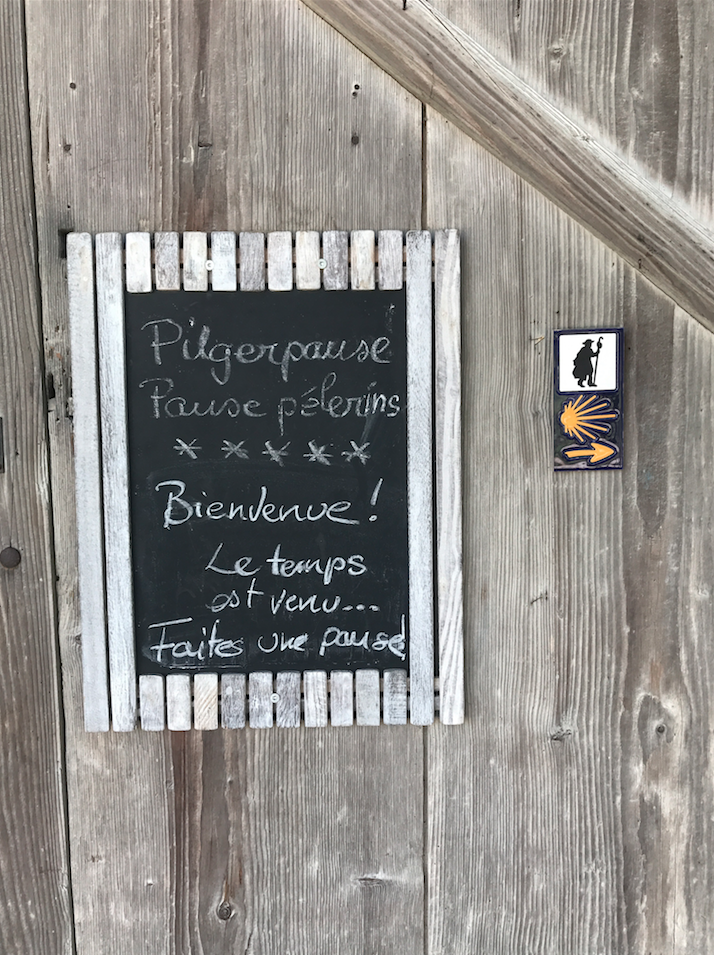 Pilgerpause!
Pause pélerins
* * * * *
Bienvenue!
Le temps
est venu...
Faites une pause!